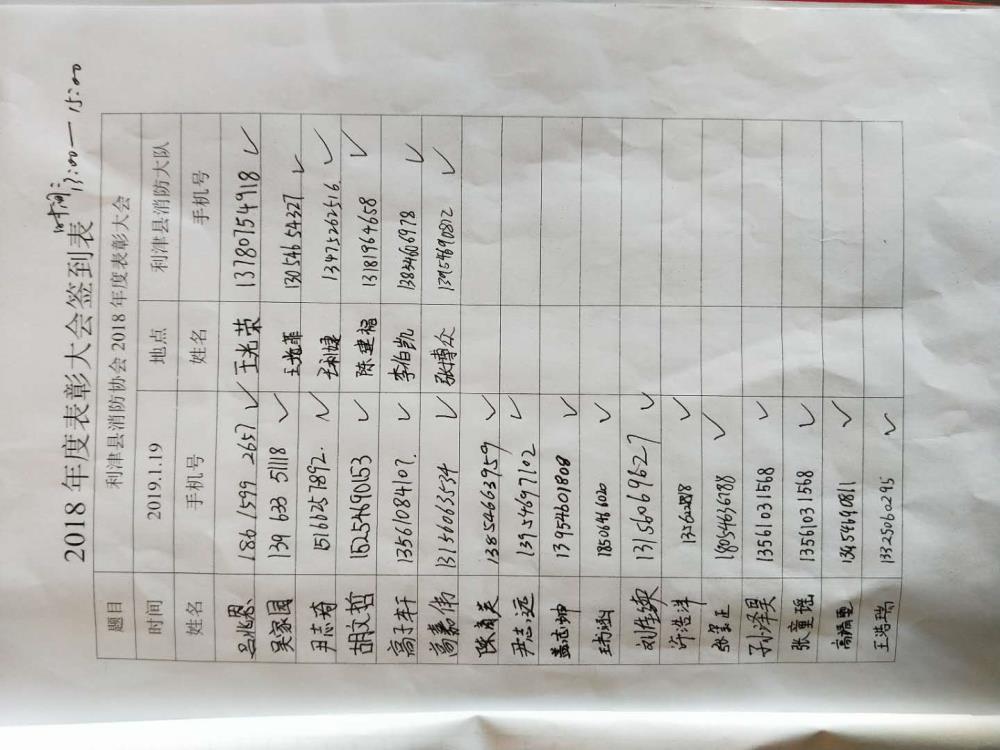 2018年度表彰大会签到表
时间: 13:00—15:00
题目 利津县消防协会2018年度表彰大会
时间 2019.1.19 地点 利津县消防大队
姓名 手机号 姓名 手机号
186 1599 2657 ✓ 王光荣 13780754918 ✓
吴家园 139 633 51118 ✓ 13054654327 ✓
尹志奇 15166257892 ✓ 13475262516 ✓
胡文哲 15254690153 ✓ 陈建福 13181964658 ✓
高子轩 13561084107 ✓ 李伯凯 13834606978 ✓
13156063534 ✓ 张博众 13954690812 ✓
陈南英 13854663959 ✓
尹志远 13954697102 ✓
盖志坤 13954601808 ✓
18506466020 ✓
13156069627 ✓
许浩洋 ✓
18054636788 ✓
孙泽昊 13561031568 ✓
张童瑶 13561031568 ✓
13954690811 ✓
王浩瑞 13325060295 ✓